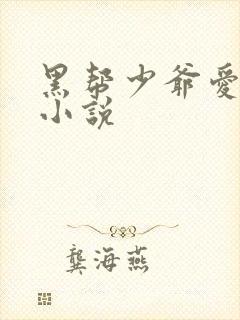 黑帮少爷愛
小說
龔海燕